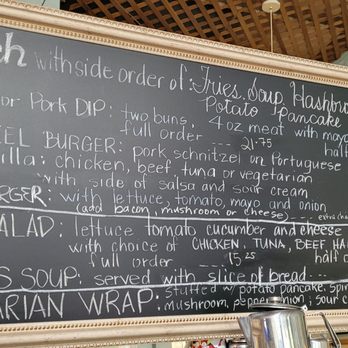 ch with side order of: Fries, Soup, Hashbrow
Potato Pancake
or Pork DIP: two buns, 4 oz meat with mayo
full order ... 21.75 half
EL BURGER: pork schnitzel on Portuguese
illa: chicken, beef, tuna or vegetarian
with side of salsa and sour cream
RGER: with lettuce, tomato, mayo and onion
(add bacon, mushroom or cheese) extra cha
ALAD: lettuce tomato cucumber and cheese
with choice of CHICKEN, TUNA, BEEF, HA
full order ... 15.25 half o
S SOUP: served with slice of bread ...
ARIAN WRAP: stuffed w/ potato pancake, spin
mushroom, pepper, onion, sour c